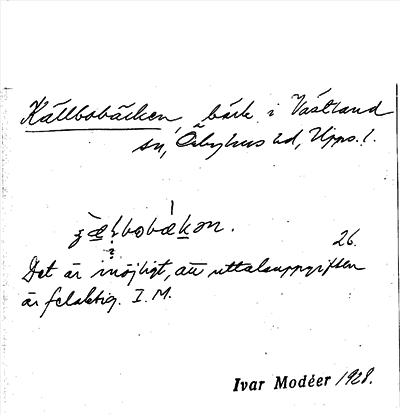 Källbobäcken bäck i Västland
sn, Örbyhus hd, Upps. l.
bobäkən.
26.
Det är möjligt, att uttalsuppgiften
är felaktig. I.M.
Ivar Modéer 1928.